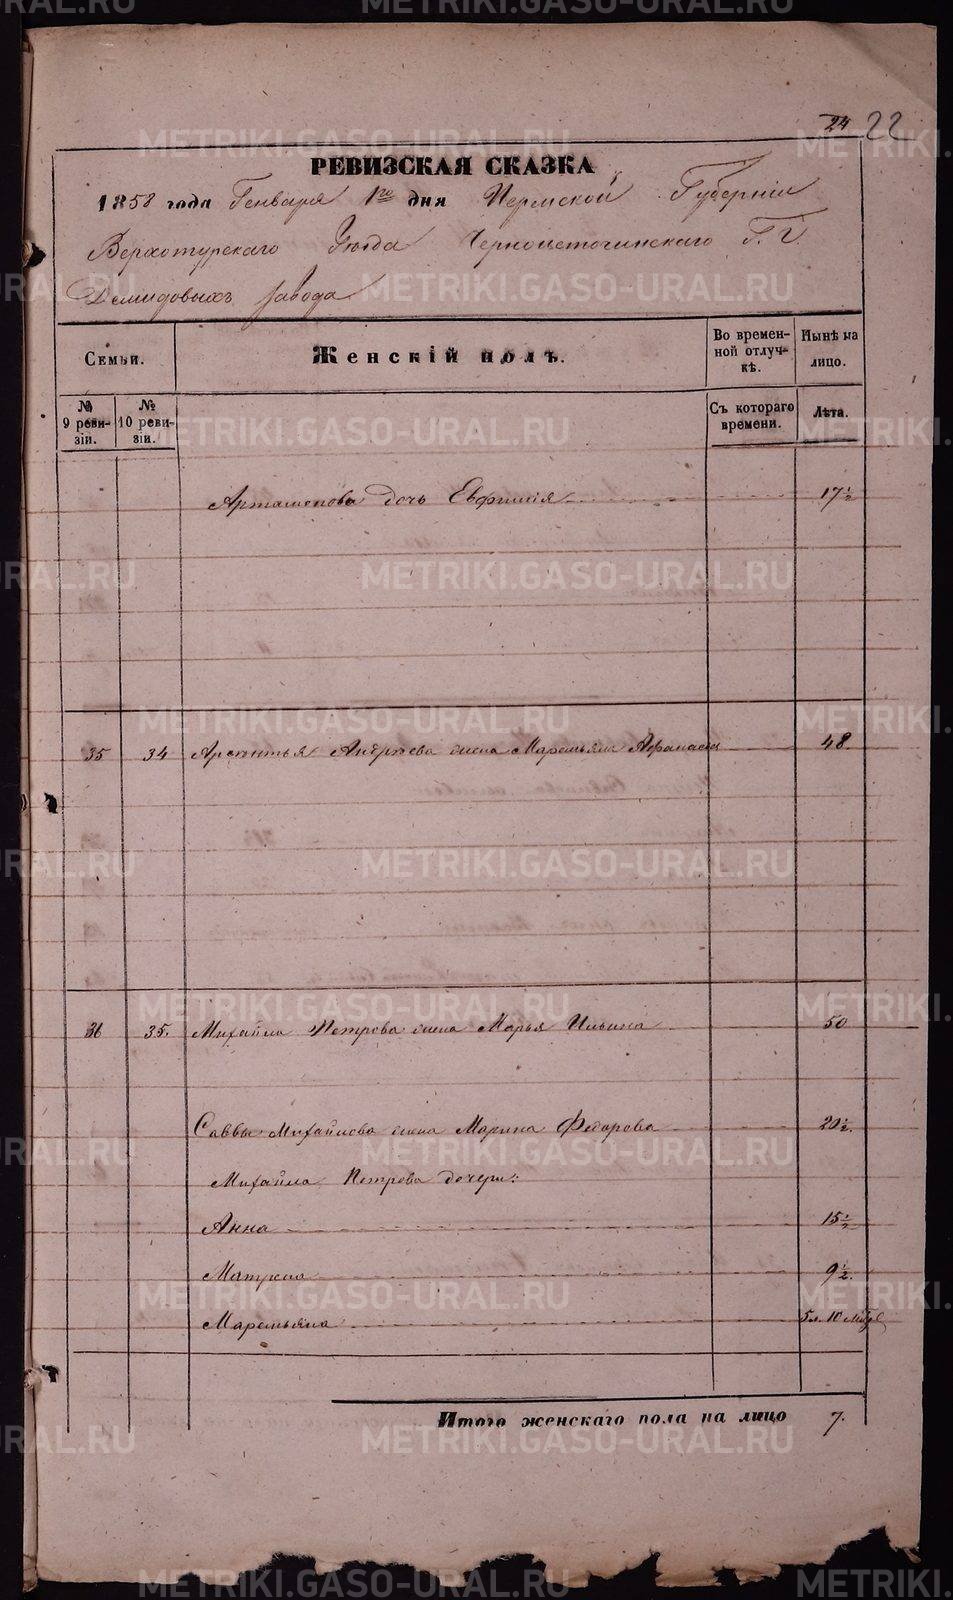 24 22
РЕВИЗСКАЯ СКАЗКА
1858 года Генваря 1го дня Пермской Губерніи
Верхотурскаго Уезда Черноисточинскаго Г.Г.
Демидовыхъ завода
Семьи.
Женскій полъ.
Во времен-
ной отлуч-
кѣ.
Нынѣ на
лицо.
№
9 реви-
зіи.
№
10 реви-
зіи.
Съ котораго
времени.
Лѣта.
дочь Евфимія 17½
35 34 Андреева жена Маремьяна Афанасьева 48
36 35. Михайла Петрова жена Марья Ильина 50
Саввы Михайлова жена Марина Федорова 20½.
Михайла Петрова дочери:
Анна 15½
Матрена 9½.
Маремьяна 5 л. 10
Итого женскаго пола на лицо 7.
METRIKI.GASO-URAL.RU